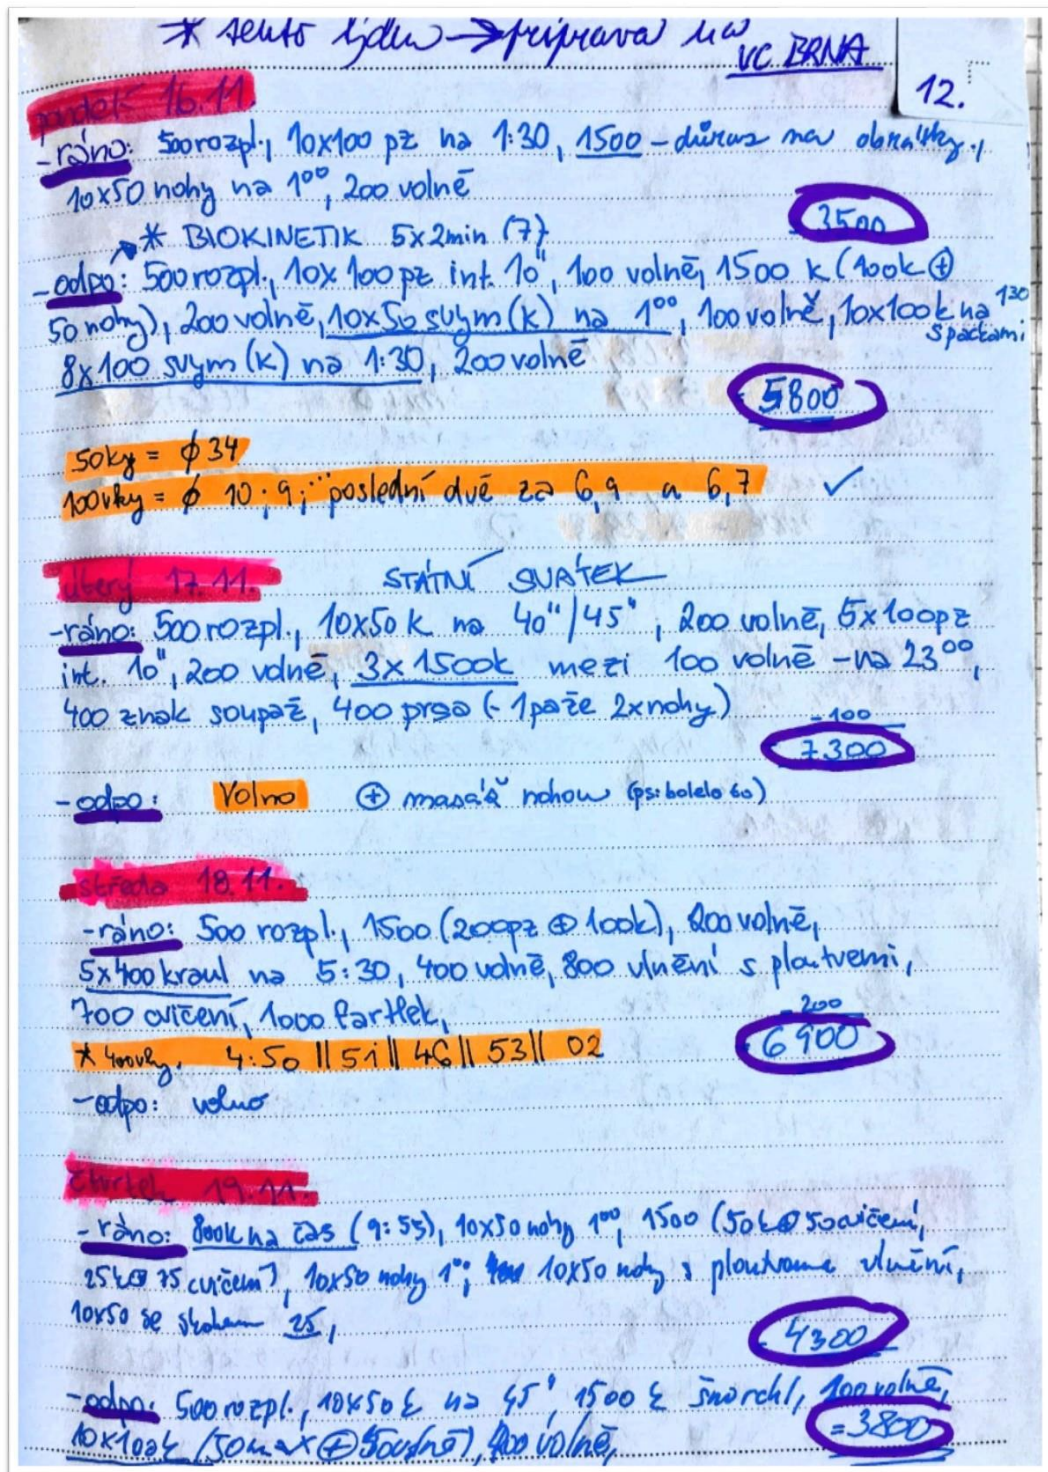 * tento týden → příprava na
VC BRNA
12.
pondělí 16.11.
- ráno: 500 rozpl., 10x100 pz na 1:30, 1500 - důraz na obrátky.,
10x50 nohy na 1⁰⁰, 200 volně
3500
* BIOKINETIK 5x2min (7)
- odpo: 500 rozpl., 10x100 pz int. 10", 100 volně, 1500 k (100k ⊕
50 nohy), 200 volně, 10x50 svým (k) na 1⁰⁰, 100 volně, 10x100k na 1³⁰
s packami
8x100 svým (k) na 1:30, 200 volně
5800
50ky = ϕ 34
100vky = ϕ 10; 9; poslední dvě za 6,9 a 6,7 ✓
úterý 17.11. STÁTNÍ SVÁTEK
- ráno: 500 rozpl., 10x50 k na 40"/45", 200 volně, 5x100pz
int. 10", 200 volně, 3x1500k mezi 100 volně - na 23⁰⁰,
400 znak soupaž, 400 prsa (- 1 paže 2x nohy)
- 100
7300
- odpo: Volno ⊕ masáž nohou (ps: bolelo to)
středa 18.11.
- ráno: 500 rozpl., 1500 (200pz ⊕ 100k), 200 volně,
5x400 kraul na 5:30, 400 volně, 800 vlnění s ploutvemi,
700 cvičení, 1000 fartlek,
- 200
6900
* 400vky. 4:50 || 51 || 46 || 53 || 02
- odpo: volno
čtvrtek 19.11.
- ráno: 800k na čas (9:55), 10x50 nohy 1⁰⁰, 1500 (50k ⊕ 50 cvičení,
25k ⊕ 75 cvičení), 10x50 nohy 1⁰⁰, 10x50 nohy s ploutvemi vlnění,
10x50 se skokem 25,
4300
- odpo: 500 rozpl., 10x50 k na 45", 1500 k šnorchl, 100 volně,
10x100k (50 max ⊕ 50 volně), 200 volně,
=3800